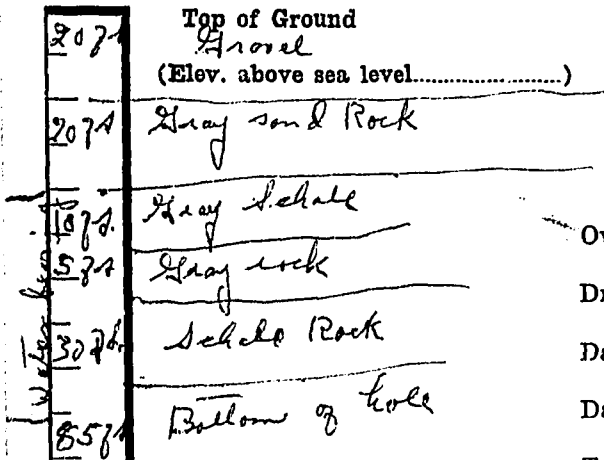 Top of Ground
20 ft Gravel
(Elev. above sea level........................)
20 ft Gray sand Rock
10 ft. Gray Schale
5 ft Gray rock
30 ft. Schale Rock
85 ft Bottom of hole
Water
Ov
Dr
Da
Da